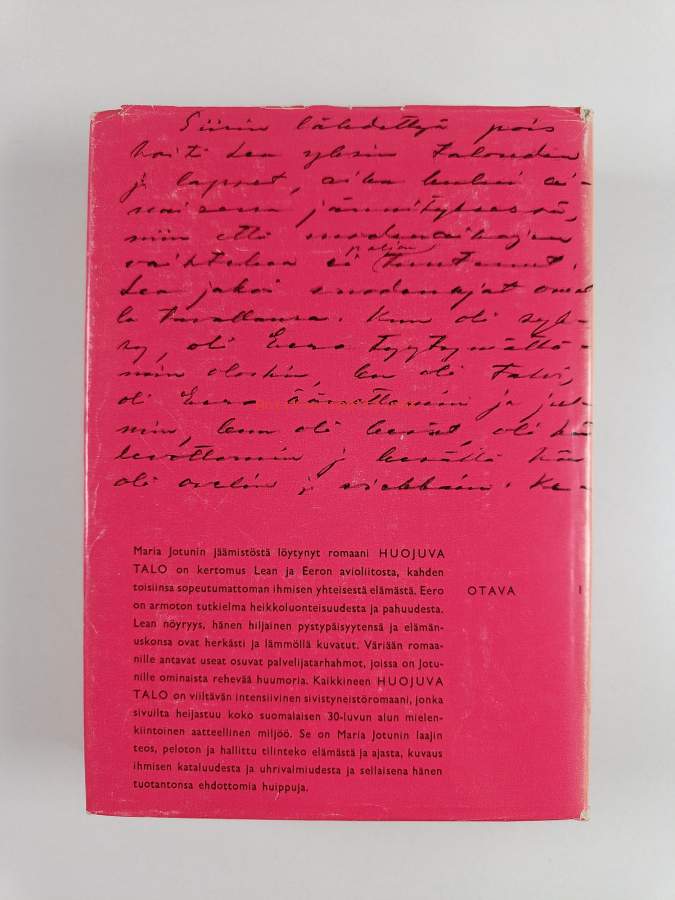 Siirin lähdettyä pois
hoiti Lea yksin talouden
j lapset, aika kului ai-
naisessa jännityksessä,
niin että vuodenaikojen
paljon
vaihtelua ei tuntenut.
Lea jakoi vuodenajat omal
la tavallansa. Kun oli syk-
sy, oli Eero tyytymättö-
min oloihin, kun oli talvi,
oli Eero äänettömin ja ju
min, kun oli kevät, oli hä
levottomin j kesällä hän
oli ovelin j Ke-
Maria Jotunin jäämistöstä löytynyt romaani HUOJUVA
TALO on kertomus Lean ja Eeron avioliitosta, kahden
toisiinsa sopeutumattoman ihmisen yhteisestä elämästä. Eero
on armoton tutkielma heikkoluonteisuudesta ja pahuudesta.
Lean nöyryys, hänen hiljainen pystypäisyytensä ja elämän-
uskonsa ovat herkästi ja lämmöllä kuvatut. Väriään romaa-
nille antavat useat osuvat palvelijatarhahmot, joissa on Jotu-
nille ominaista rehevää huumoria. Kaikkineen HUOJUVA
TALO on viiltävän intensiivinen sivistyneistöromaani, jonka
sivuilta heijastuu koko suomalaisen 30-luvun alun mielen-
kiintoinen aatteellinen miljöö. Se on Maria Jotunin laajin
teos, peloton ja hallittu tilinteko elämästä ja ajasta, kuvaus
ihmisen kataluudesta ja uhrivalmiudesta ja sellaisena hänen
tuotantonsa ehdottomia huippuja.
OTAVA